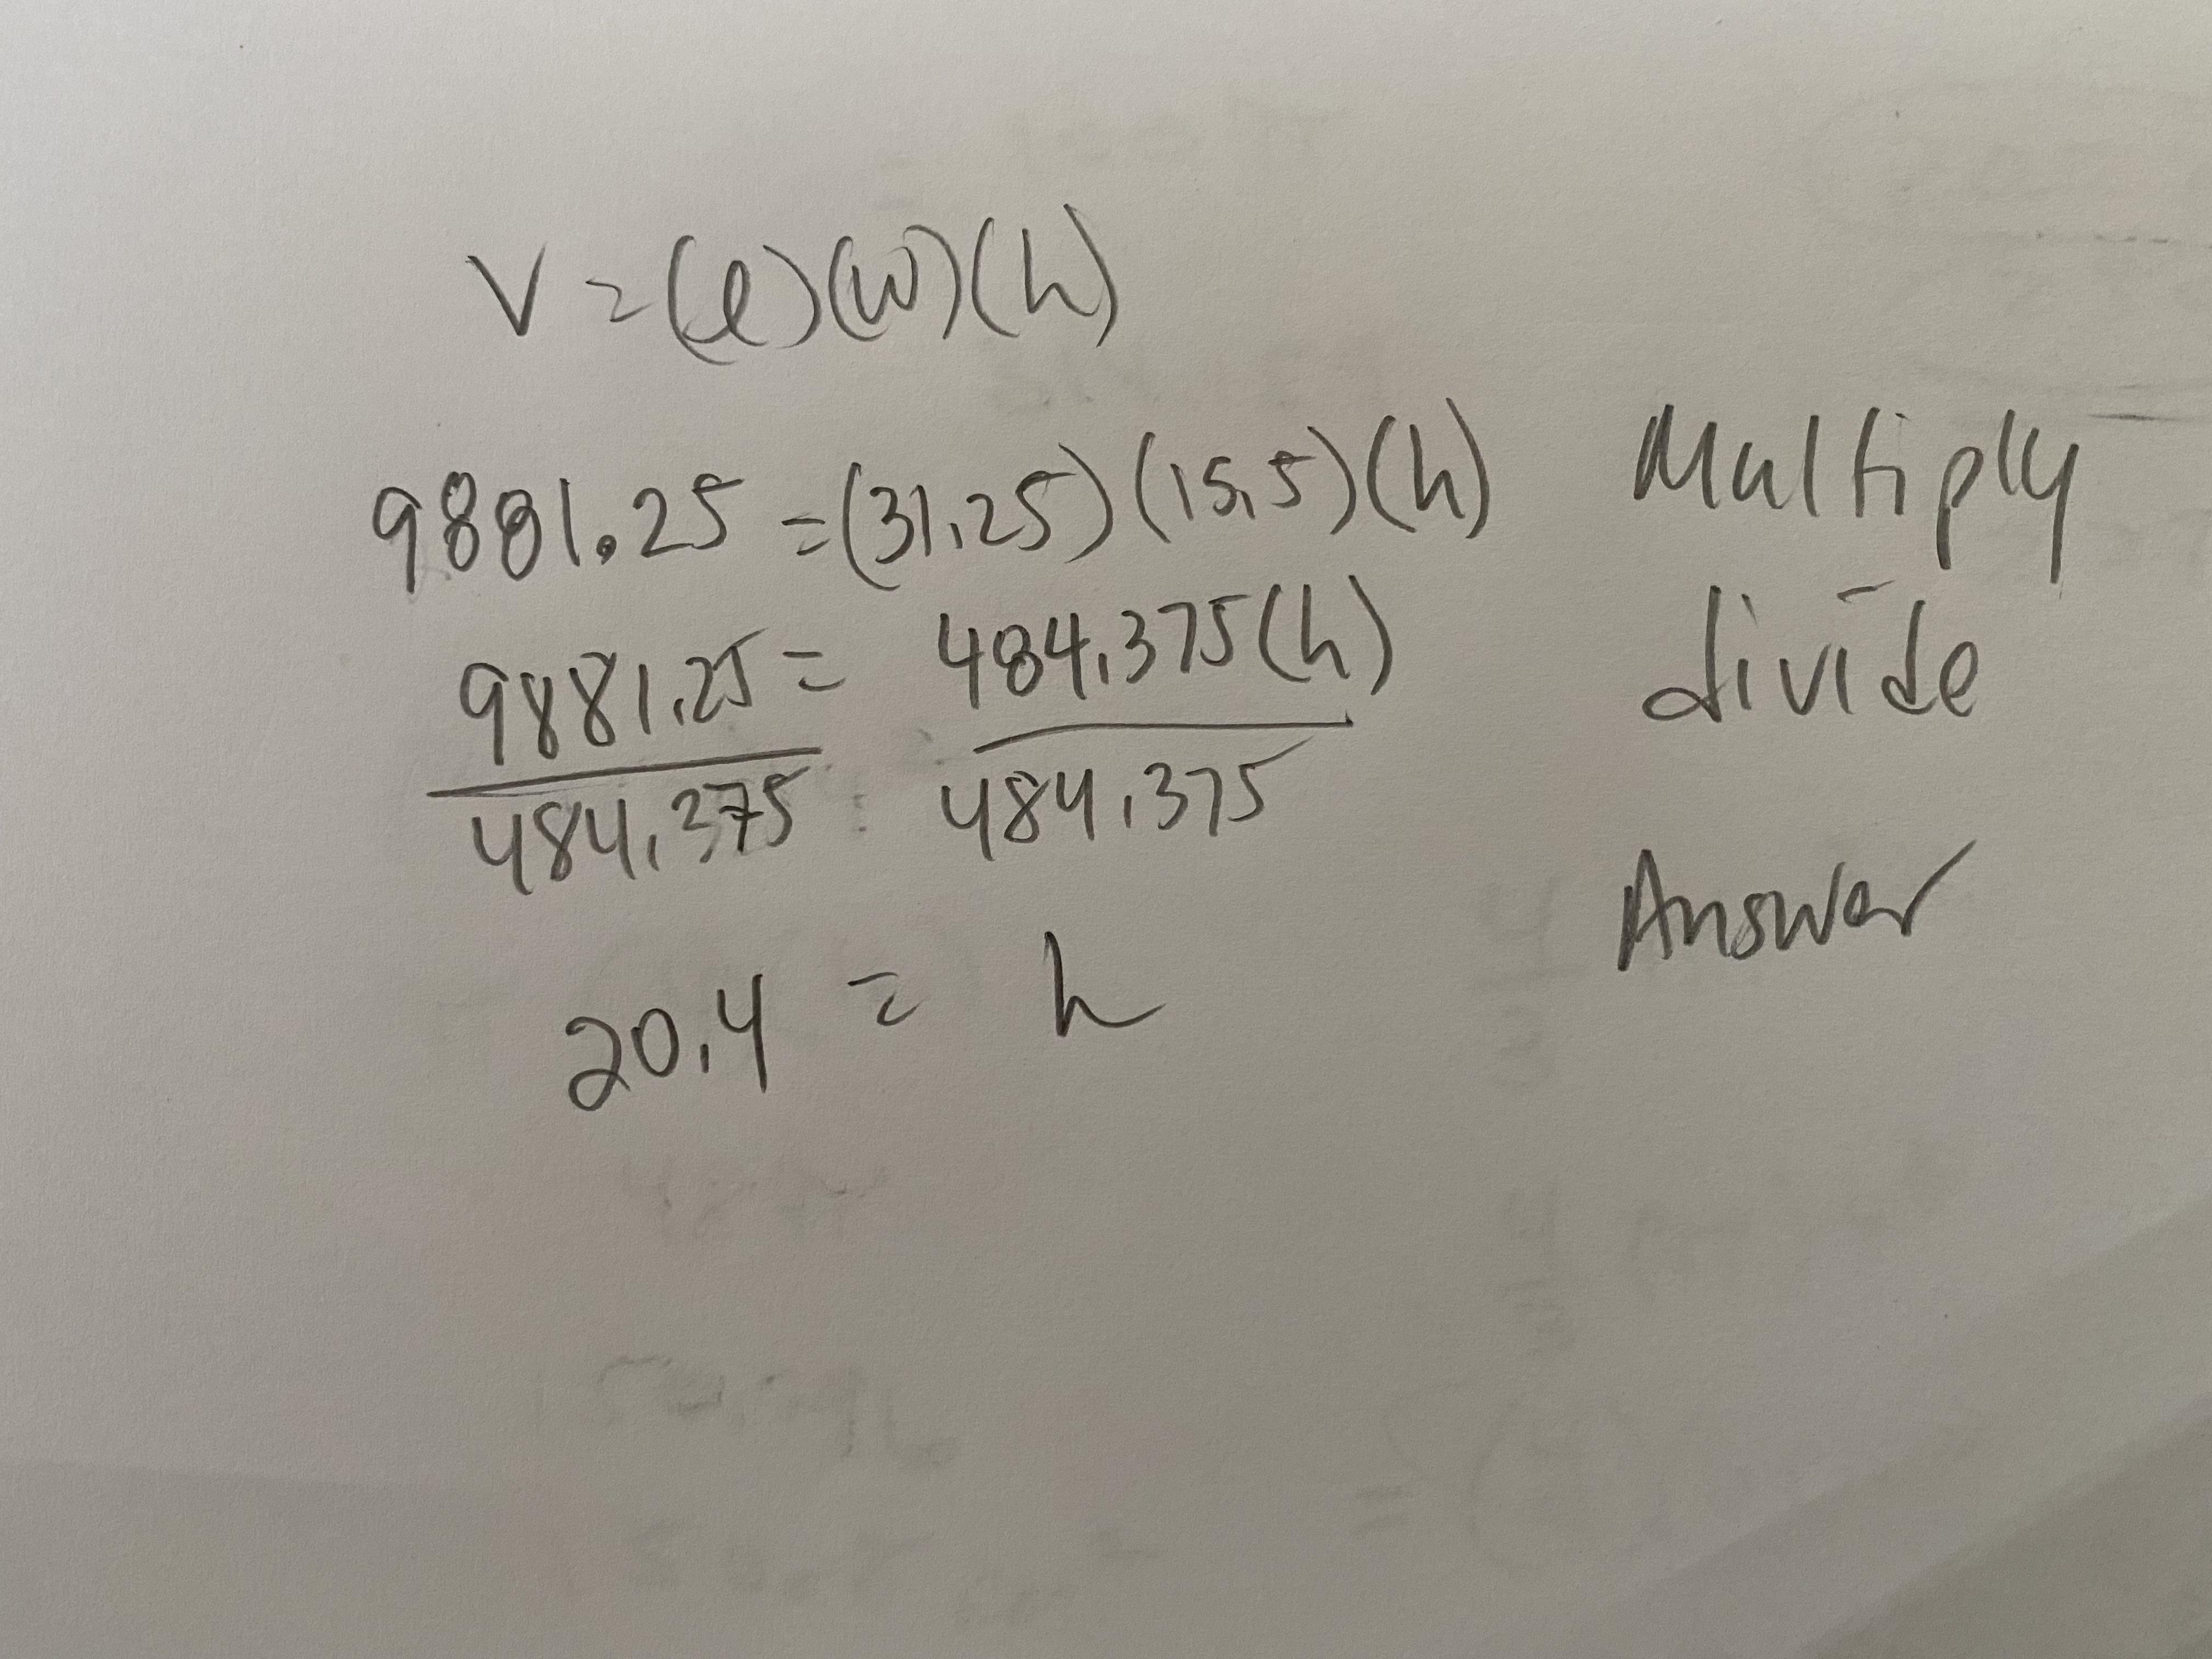 V = (l)(w)(h)
9881.25 = (31.25)(15.5)(h) Multiply
9881.25 = 484.375(h) divide
484.375 484.375
20.4 = h Answer